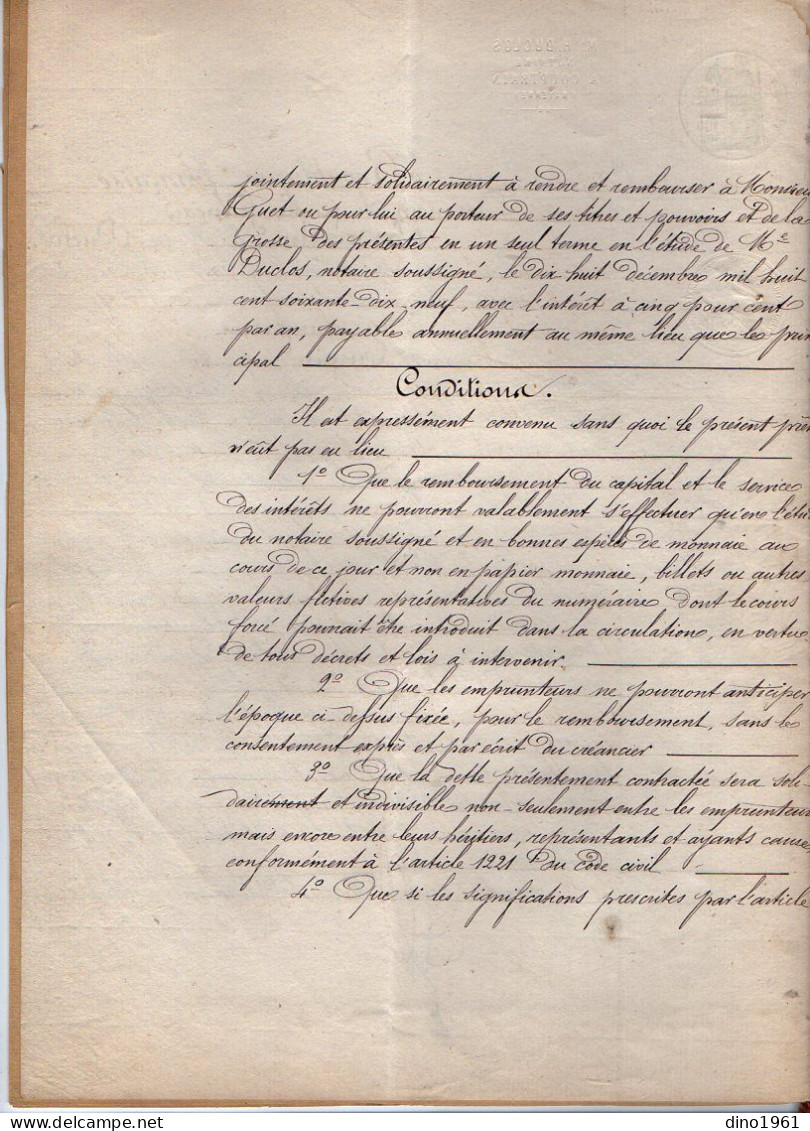 jointement et solidairement à rendre et rembourser à Monsieu
Guet ou pour lui au porteur de ses titres et pouvoirs et de la
Grosse des présentes en un seul terme en l'étude de Me
Duclos, notaire soussigné, le dix huit décembre mil huit
cent soixante-dix neuf, avec l'intérêt à cinq pour cent
par an, payable annuellement au même lieu que le prin
cipal
Conditions.
Il est expressément convenu sans quoi le présent prêt
n'eût pas eu lieu
1o Que le remboursement du capital et le service
des intérêts ne pourront valablement s'effectuer qu'en l'étu
du notaire soussigné et en bonnes espèces de monnaie au
cours de ce jour et non en papier monnaie, billets ou autres
valeurs fictives représentatives du numéraire dont le cours
forcé pourrait être introduit dans la circulation, en vertu
de tous décrets et lois à intervenir.
2o Que les emprunteurs ne pourront anticiper
l'époque ci-dessus fixée, pour le remboursement, sans le
consentement exprès et par écrit du créancier
3o Que la dette présentement contractée sera soli-
dairement et indivisible non-seulement entre les emprunteur
mais encore entre leurs héritiers, représentants et ayants cause
conformément à l'article 1221 du code civil
4o Que si les significations prescrites par l'article
dino1961